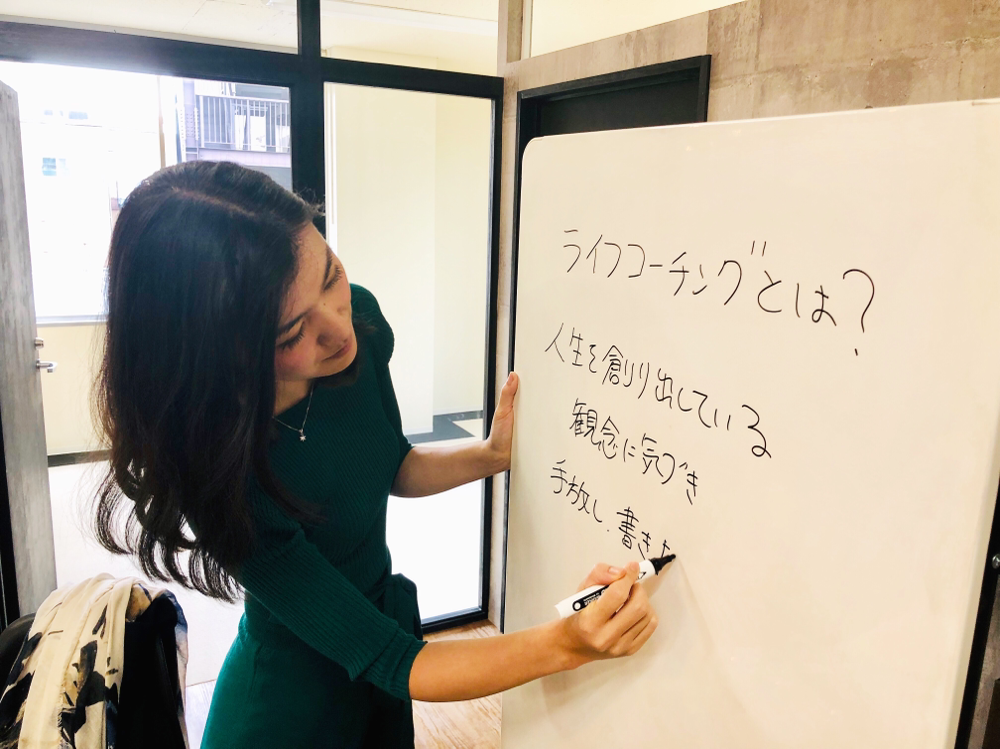 ライフコーチングとは?
人生を創り出している
観念に気づき
手放し、書き